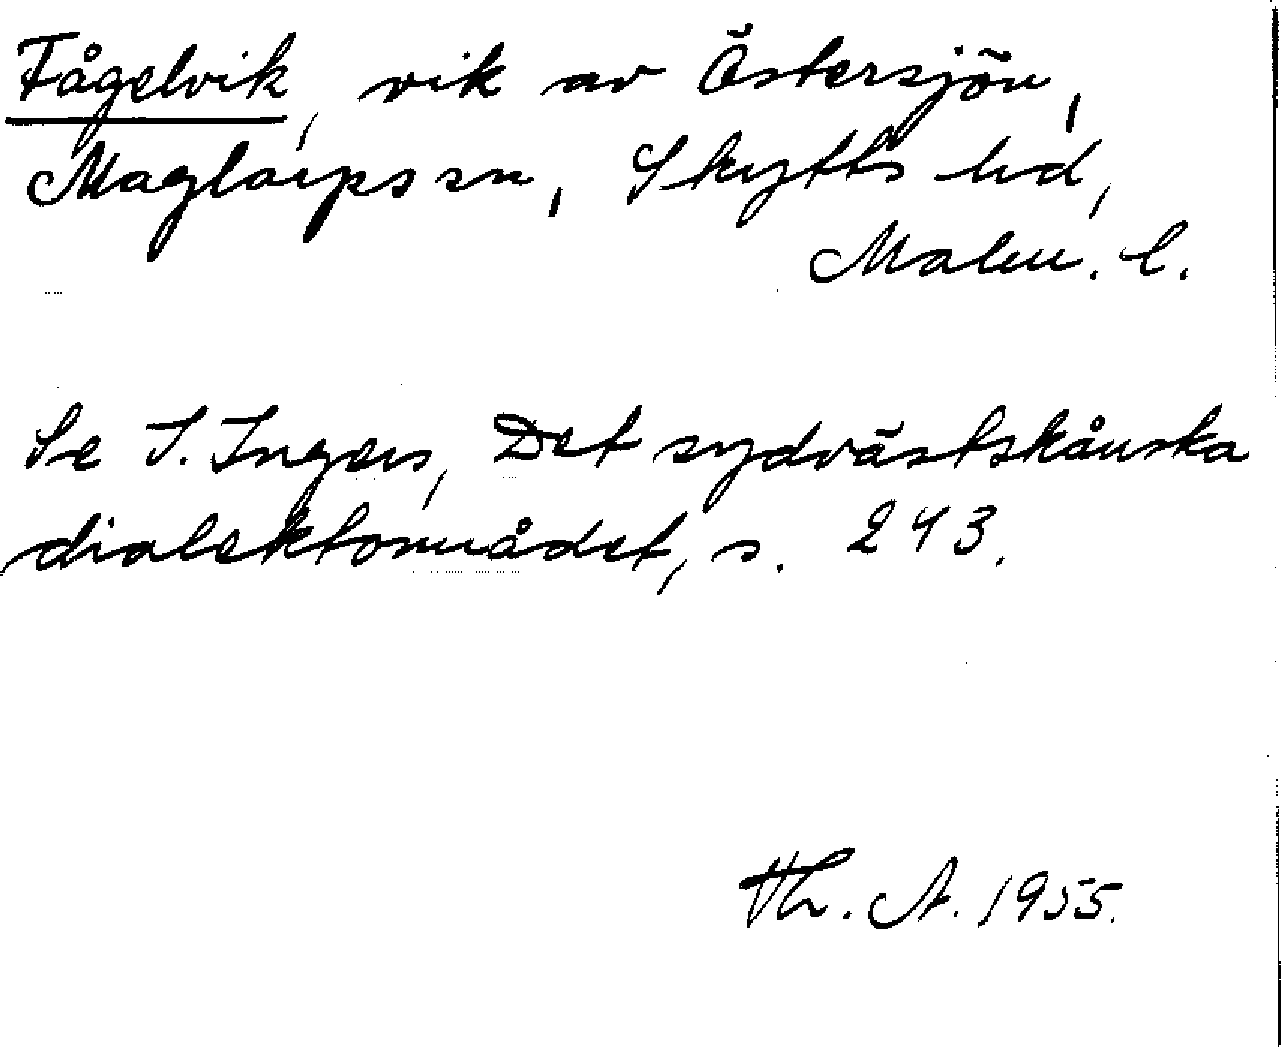 Fågelvik, vik av Östersjön,
Maglarps sn, Skytts hd,
Malm. l.
Se I. Ingers, Det sydvästskånska
dialektområdet, s. 243.
Th. A. 1955.